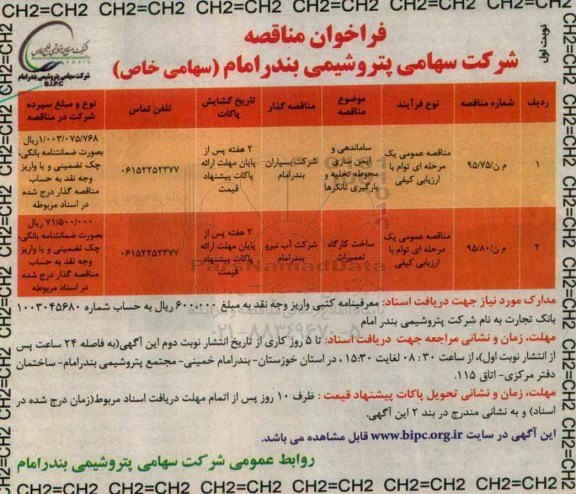 CH2=CH2 CH2=CH2 CH2=CH2 CH2=CH2 CH2=CH2 CH2=CH2 CH2=CH2 CH2=CH2
نوبت اول
فراخوان مناقصه
شرکت سهامی پتروشیمی بندرامام (سهامی خاص)
شرکت سهامی پتروشیمی بندرامام
B.I.P.C
ردیف | شماره مناقصه | نوع فرآیند | موضوع مناقصه | مناقصه گذار | تاریخ گشایش پاکات | تلفن تماس | نوع و مبلغ سپرده شرکت در مناقصه
۱ | م ن/۹۵/۷۵ | مناقصه عمومی یک مرحله ای توام با ارزیابی کیفی | ساماندهی و ایمن سازی محوطه تخلیه و بارگیری تانکرها | شرکت بسپاران بندرامام | ۲ هفته پس از پایان مهلت ارائه پاکات پیشنهاد قیمت | ۰۶۱۵۲۲۵۲۳۷۷ | ۱/۰۰۳/۰۷۵/۷۶۸ریال بصورت ضمانتنامه بانکی، چک تضمینی و یا واریز وجه نقد به حساب مناقصه گذار درج شده در اسناد مربوطه
۲ | م ن/۹۵/۸۰ | مناقصه عمومی یک مرحله ای توام با ارزیابی کیفی | ساخت کارگاه تعمیرات | شرکت آب نیرو بندرامام | ۲ هفته پس از پایان مهلت ارائه پاکات پیشنهاد قیمت | ۰۶۱۵۲۲۵۲۳۷۷ | ۷۱/۵۰۰/۰۰۰ ریال بصورت ضمانتنامه بانکی، چک تضمینی و یا واریز وجه نقد به حساب مناقصه گذار درج شده در اسناد مربوطه
ParsNamadData
۰۲۱-۸۸۳۴۹۶۷۰-۵
مدارک مورد نیاز جهت دریافت اسناد: معرفینامه کتبی واریز وجه نقد به مبلغ ۶۰۰،۰۰۰ ریال به حساب شماره ۱۰۰۳۰۴۵۶۸۰
بانک تجارت به نام شرکت پتروشیمی بندر امام
مهلت، زمان و نشانی مراجعه جهت دریافت اسناد: تا ۵ روز کاری از تاریخ انتشار نوبت دوم این آگهی(به فاصله ۲۴ ساعت پس
از انتشار نوبت اول)، از ساعت ۳۰ : ۰۸ لغایت ۱۵:۳۰ ، در استان خوزستان- بندرامام خمینی- مجتمع پتروشیمی بندرامام- ساختمان
دفتر مرکزی- اتاق ۱۱۵.
مهلت، زمان و نشانی تحویل پاکات پیشنهاد قیمت : ظرف ۱۰ روز پس از اتمام مهلت دریافت اسناد مربوط(زمان درج شده در
اسناد) و به نشانی مندرج در بند ۲ این آگهی.
این آگهی در سایت www.bipc.org.ir قابل مشاهده می باشد.
روابط عمومی شرکت سهامی پتروشیمی بندرامام
CH2=CH2 CH2=CH2 CH2=CH2 CH2=CH2 CH2=CH2 CH2=CH2 CH2=CH2 CH2=CH2